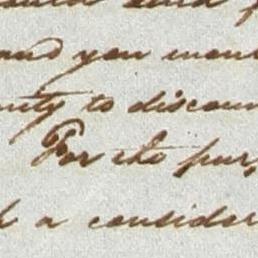 and you mon
nity to discoun
For the pur,
h a consider